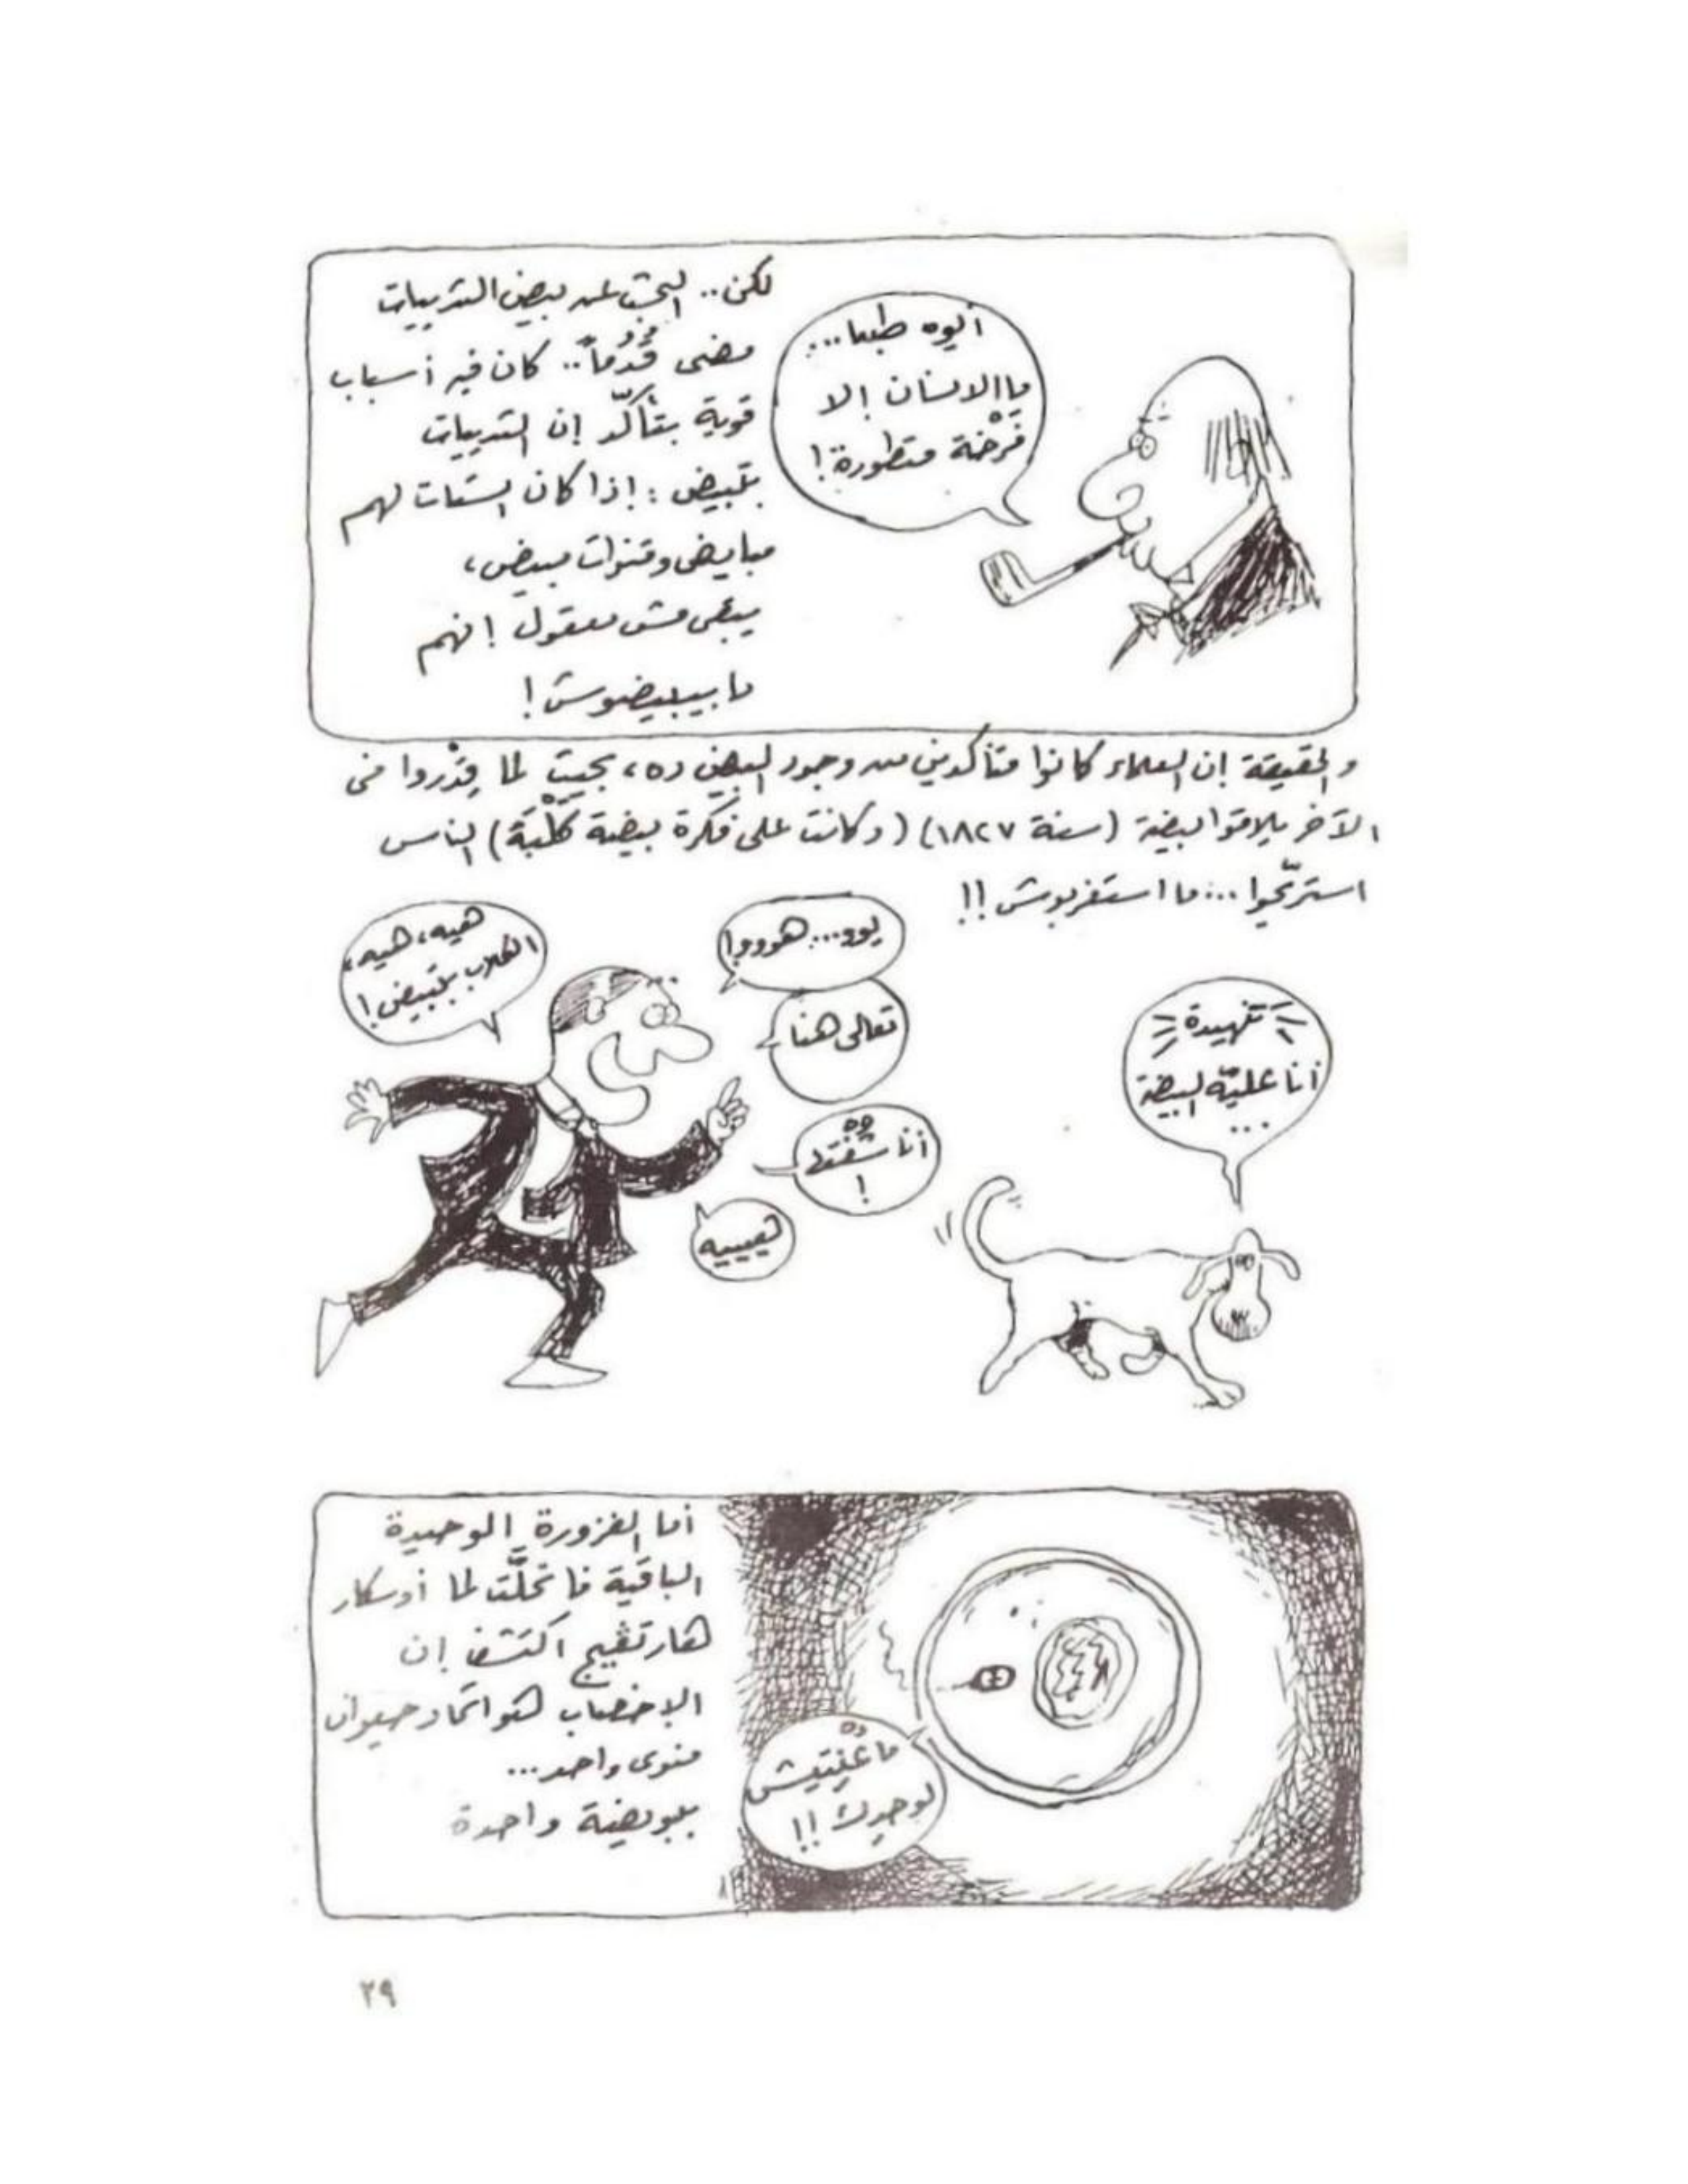 أيوه طبعا...
ما الانسان إلا
فَرْخَة متطورة!
لكن.. البحث عن بيض الثدييات
مضى قُدُماً.. كان فيه أسباب
قوية بتأكّد إن الثدييات
بتبيض : إذا كان الستات لهم
مبايض وقنوات بيض،
يبقى مش معقول إنهم
ما بيبيضوش!
والحقيقة إن العلماء كانوا متأكدين من وجود البيض ده، بحيث لما قِدْروا فى
الآخر يلاقوا بيضة (سنة ١٨٢٧) (وكانت على فكرة بيضة كَلْبَة) الناس
استريّحوا... ما استغربوش!!
هيه، هيه،
الكلاب بتبيض!
يوو... هووو!
تعالى هنا
أنا شفت
!
هيييه
تنهيدة
أنا عليّه البيضة
...
أما الفزورة الوحيدة
الباقية فاتحلّت لما أوسكار
هارتڤيج اكتشف إن
الإخصاب هو اتحاد حيوان
منوى واحد...
ببويضة واحدة
لوحدك!!
٢٩